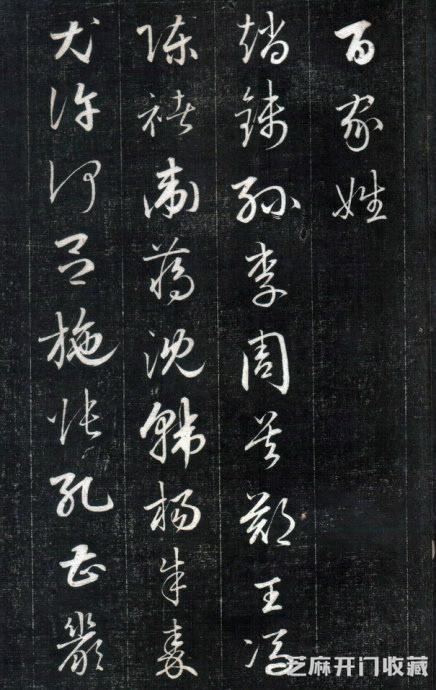 百家姓
趙錢孫李周吳鄭王馮
陳褚衛蔣沈韓楊朱秦
尤許何呂施張孔曹嚴
芝麻开门收藏